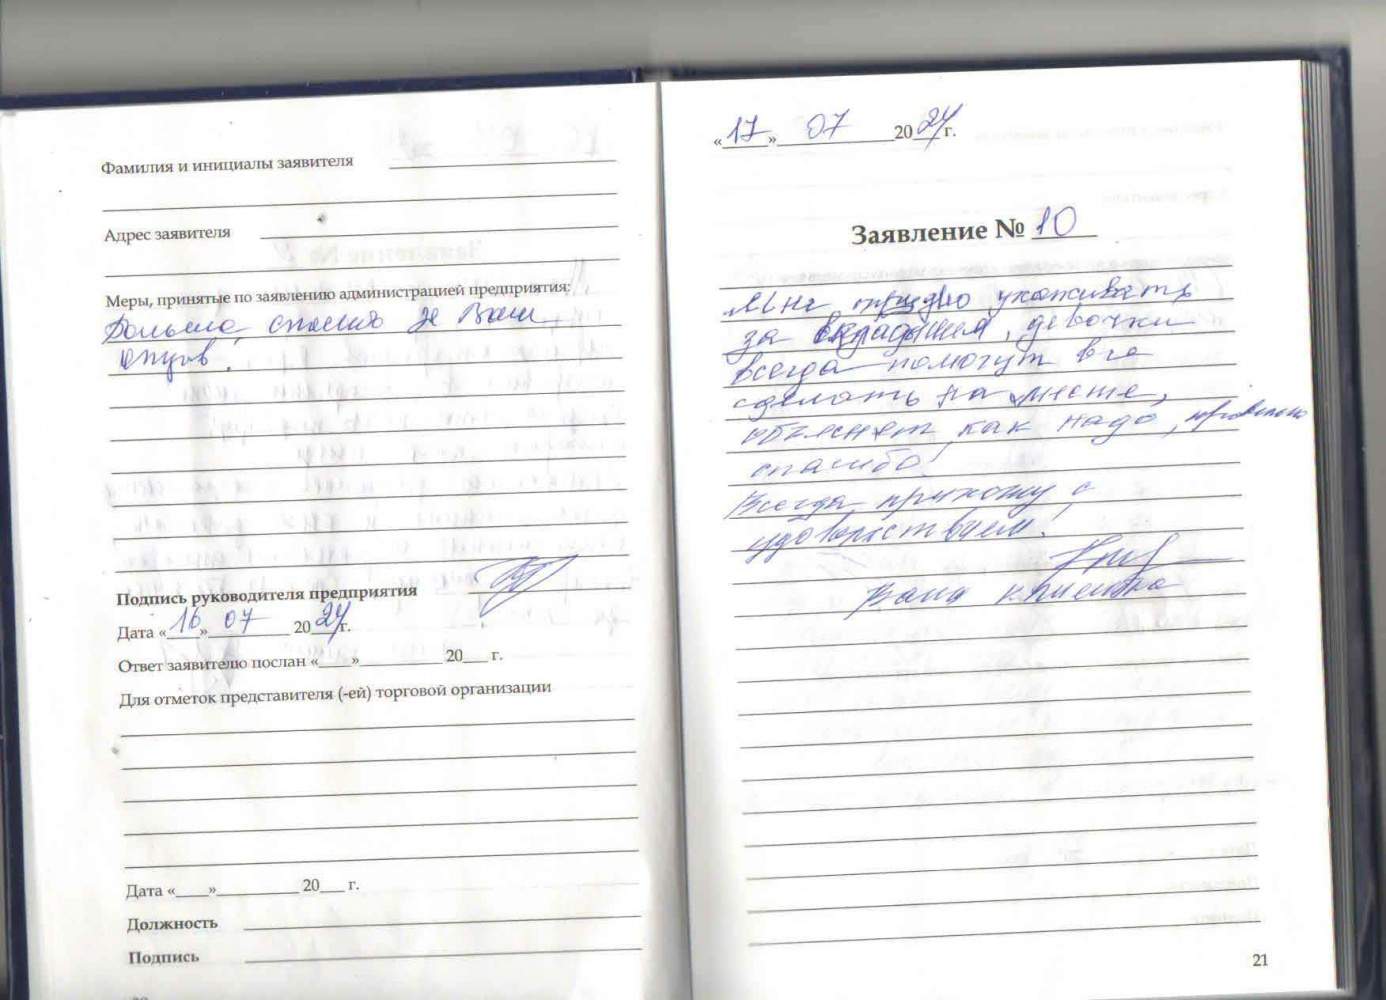 Фамилия и инициалы заявителя
Адрес заявителя
Меры, принятые по заявлению администрацией предприятия:
Большое спасибо за Ваш
отзыв.
Подпись руководителя предприятия
Дата «16» 07 2024г.
Ответ заявителю послан «____»__________ 20___ г.
Для отметок представителя (-ей) торговой организации
Дата «____»__________ 20___ г.
Должность
Подпись
«17» 07 2024г.
Заявление № 10
Мне трудно ухаживать
за девочки
всегда помогут все
сделать на месте,
объяснят как надо, правильно
спасибо!
Всегда прихожу с
удовольствием!
Ваша клиентка
21